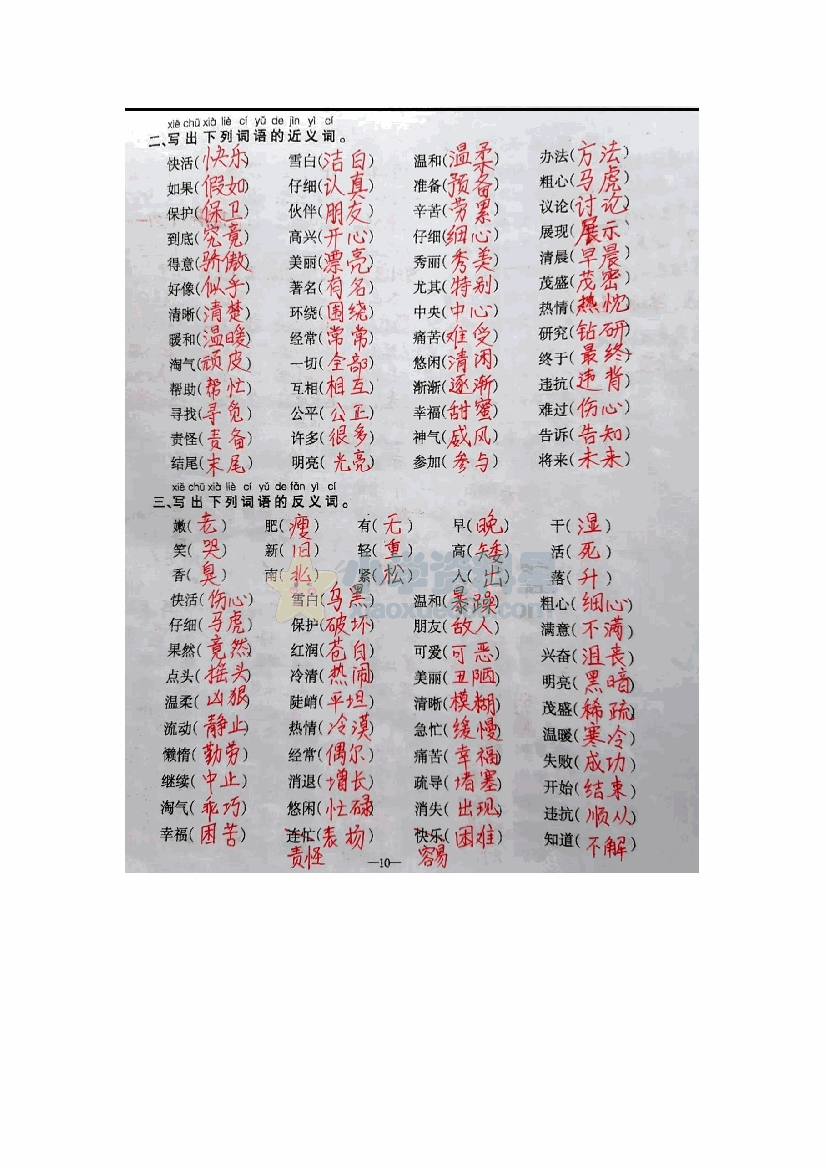 xiě chū xià liè cí yǔ de jìn yì cí
二、写出下列词语的近义词。
快活(快乐) 雪白(洁白) 温和(温柔) 办法(方法)
如果(假如) 仔细(认真) 准备(预备) 粗心(马虎)
保护(保卫) 伙伴(朋友) 辛苦(劳累) 议论(讨论)
到底(究竟) 高兴(开心) 仔细(细心) 展现(展示)
得意(骄傲) 美丽(漂亮) 秀丽(秀美) 清晨(早晨)
好像(似乎) 著名(有名) 尤其(特别) 茂盛(茂密)
清晰(清楚) 环绕(围绕) 中央(中心) 热情(热忱)
暖和(温暖) 经常(常常) 痛苦(难受) 研究(钻研)
淘气(顽皮) 一切(全部) 悠闲(清闲) 终于(最终)
帮助(帮忙) 互相(相互) 渐渐(逐渐) 违抗(违背)
寻找(寻觅) 公平(公正) 幸福(甜蜜) 难过(伤心)
责怪(责备) 许多(很多) 神气(威风) 告诉(告知)
结尾(末尾) 明亮(光亮) 参加(参与) 将来(未来)
xiě chū xià liè cí yǔ de fǎn yì cí
三、写出下列词语的反义词。
嫩(老) 肥(瘦) 有(无) 早(晚) 干(湿)
笑(哭) 新(旧) 轻(重) 高(矮) 活(死)
香(臭) 南(北) 紧(松) 入(出) 落(升)
快活(伤心) 雪白(乌黑) 温和(暴躁) 粗心(细心)
仔细(马虎) 保护(破坏) 朋友(敌人) 满意(不满)
果然(竟然) 红润(苍白) 可爱(可恶) 兴奋(沮丧)
点头(摇头) 冷清(热闹) 美丽(丑陋) 明亮(黑暗)
温柔(凶狠) 陡峭(平坦) 清晰(模糊) 茂盛(稀疏)
流动(静止) 热情(冷漠) 急忙(缓慢) 温暖(寒冷)
懒惰(勤劳) 经常(偶尔) 痛苦(幸福) 失败(成功)
继续(中止) 消退(增长) 疏导(堵塞) 开始(结束)
淘气(乖巧) 悠闲(忙碌) 消失(出现) 违抗(顺从)
幸福(困苦) 连忙(表扬) 快乐(困难) 知道(不解)
责怪 容易
—10—
小学资料星
xiaoxue